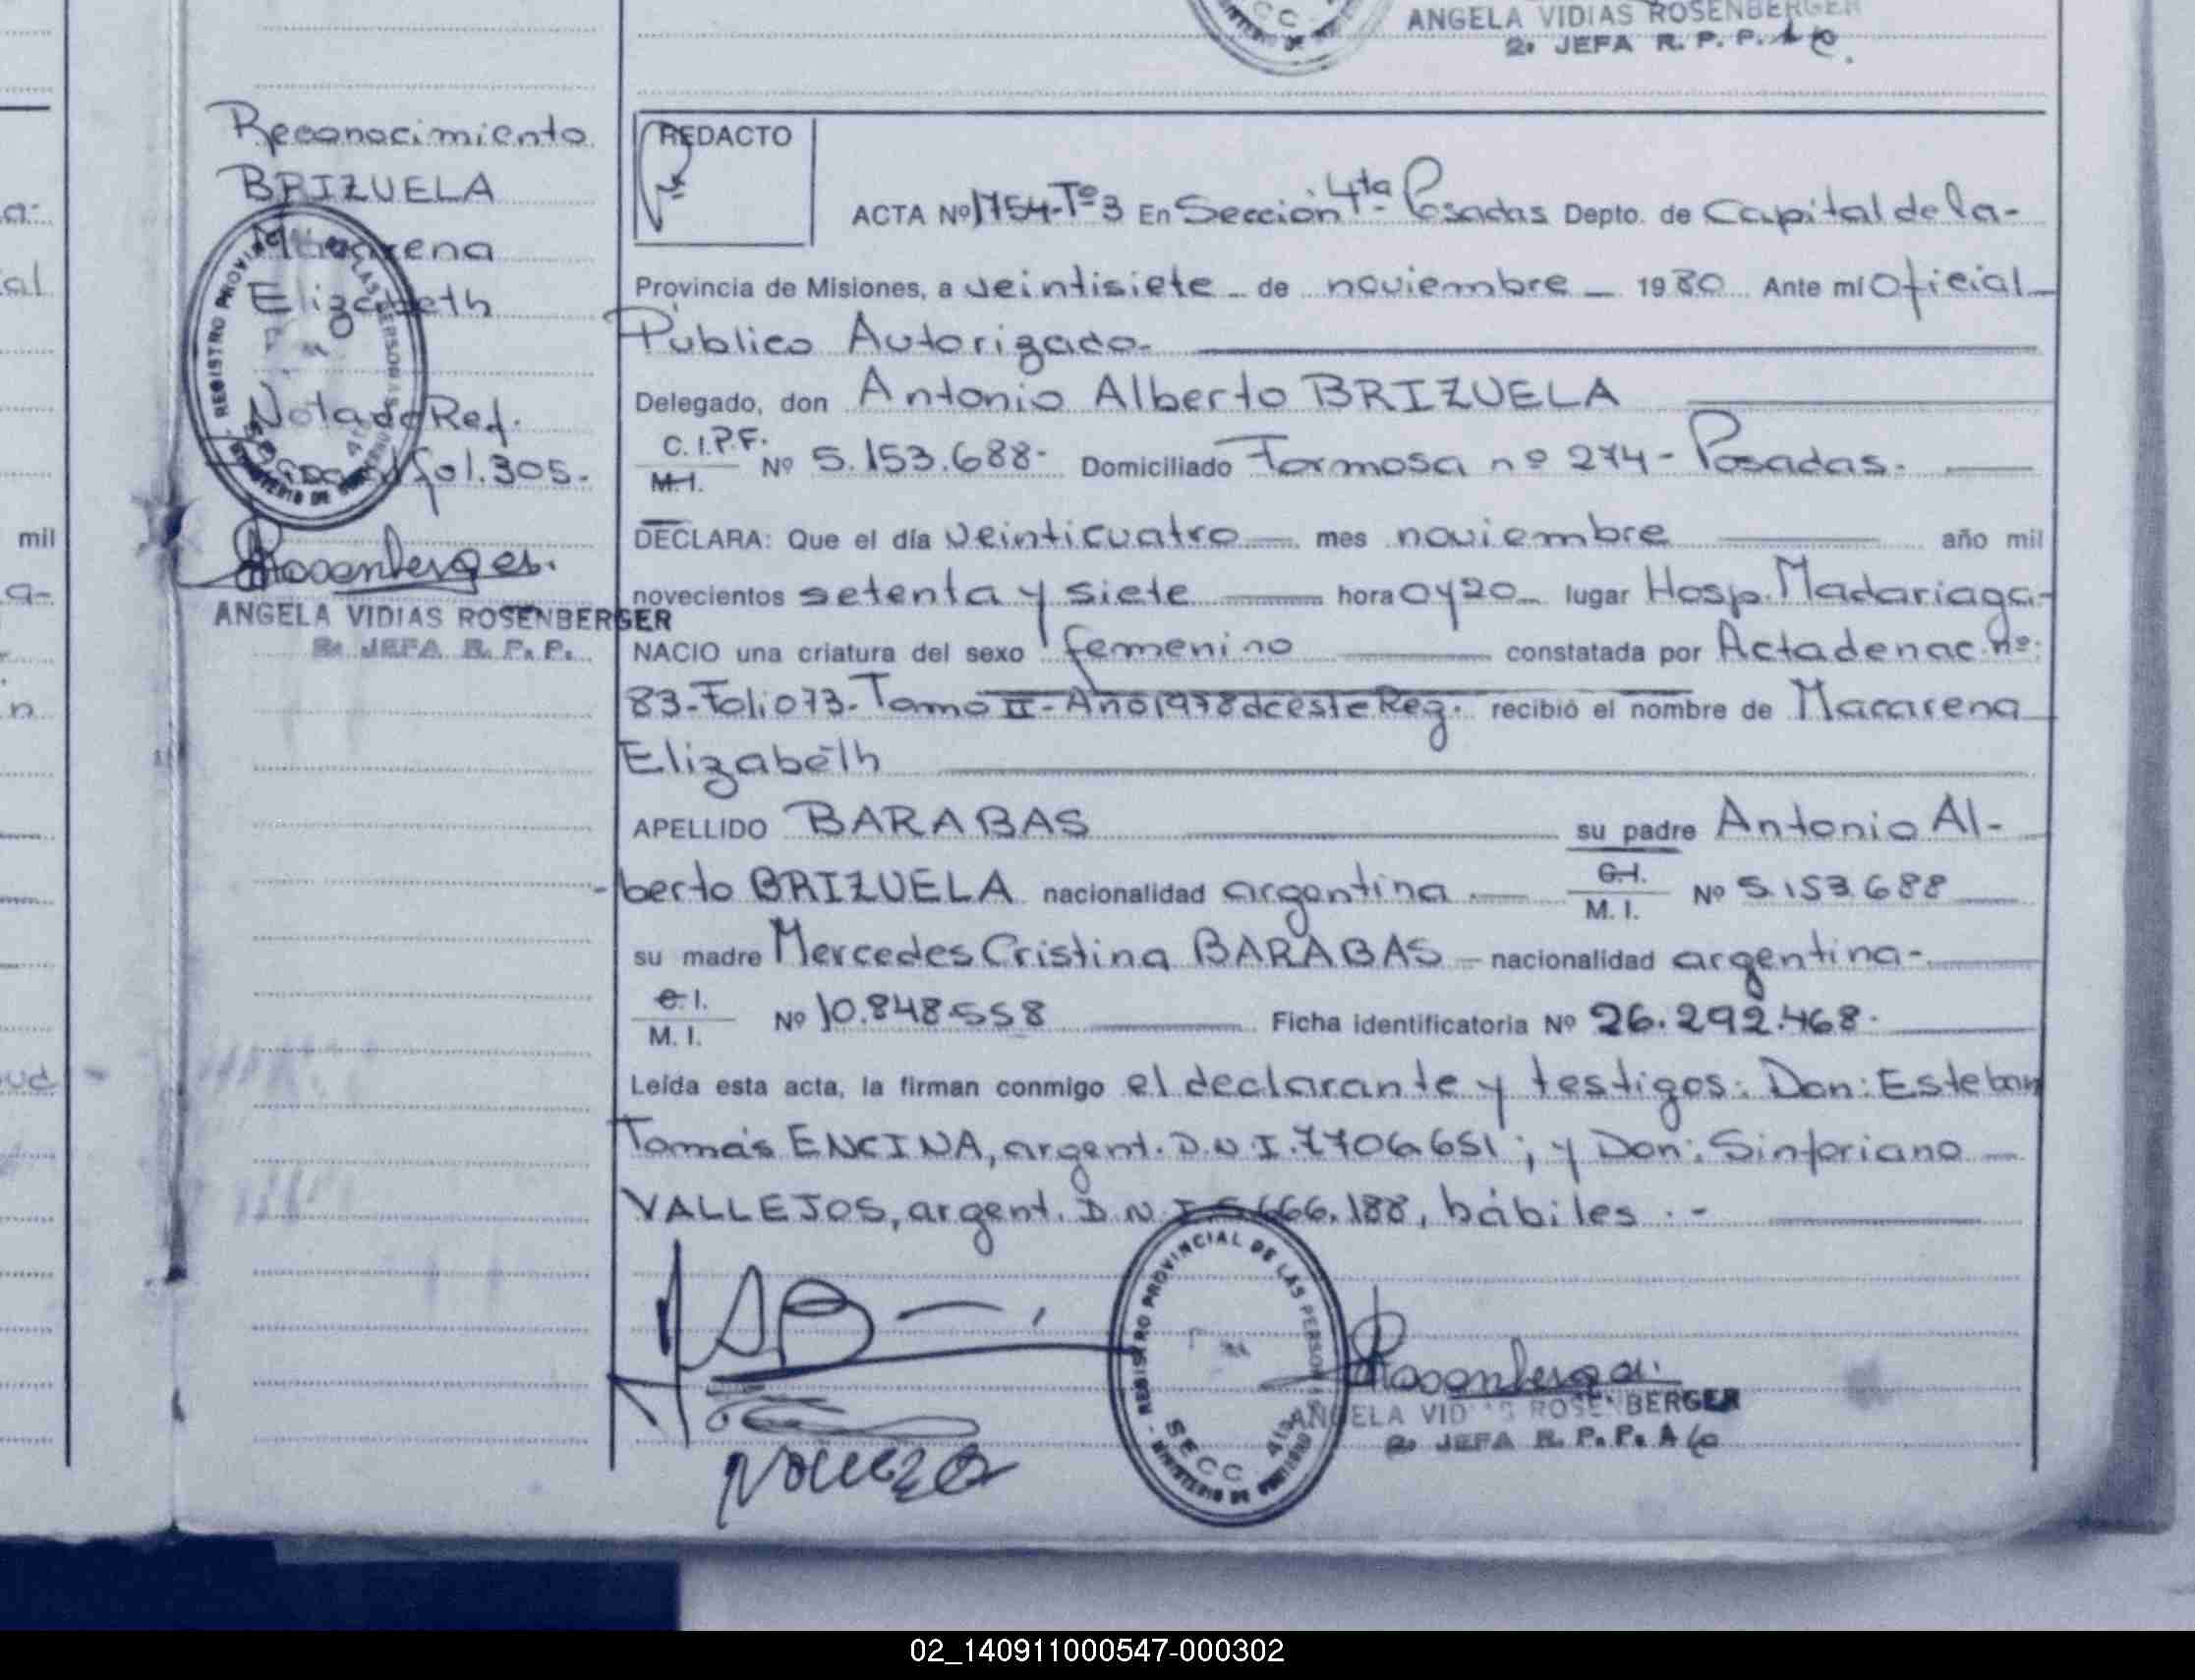 ANGELA VIDIAS ROSENBERGER
2ª JEFA R. P. P.
Reconocimiento
BRIZUELA
Macarena
Elizabeth
Nota de Ref.
fol. 305.
Rosenberger.
ANGELA VIDIAS ROSENBERGER
2ª JEFA R. P. P.
REGISTRO PROVINCIAL DE LAS PERSONAS
mil
REDACTO
ACTA Nº 1754-Tº 3 En Sección 4ta Posadas Depto. de Capital de la-
Provincia de Misiones, a veintisiete - de noviembre - 1980 Ante mí Oficial
Público Autorizado.
Delegado, don Antonio Alberto BRIZUELA
C.I.P.F.
M.I. Nº 5.153.688- Domiciliado Formosa nº 274 - Posadas.
DECLARA: Que el día veinticuatro mes noviembre año mil
novecientos setenta y siete hora 0 y 20 lugar Hosp. Madariaga-
NACIO una criatura del sexo femenino constatada por Acta de nac. nº:
83-Folio 73-Tomo II-Año 1978 de este Reg. recibió el nombre de Macarena
Elizabeth
APELLIDO BARABAS su padre Antonio Al-
-berto BRIZUELA nacionalidad argentina C.I.
M. I. Nº 5.153.688
su madre Mercedes Cristina BARABAS nacionalidad argentina-
C.I.
M. I. Nº 10.848.558 Ficha identificatoria Nº 26.292.468.
Leída esta acta, la firman conmigo el declarante y testigos: Don: Esteban
Tomás ENCINA, argent. D.N.I. 7706651; y Don: Sinforiano
VALLEJOS, argent. D.N.I. 5.666.188, hábiles.-
REGISTRO PROVINCIAL DE LAS PERSONAS
SECC 4ta
MINISTERIO DE GOBIERNO
Rosenberger.
ANGELA VIDIAS ROSENBERGER
2ª JEFA R. P. P. A/C
02_140911000547-000302